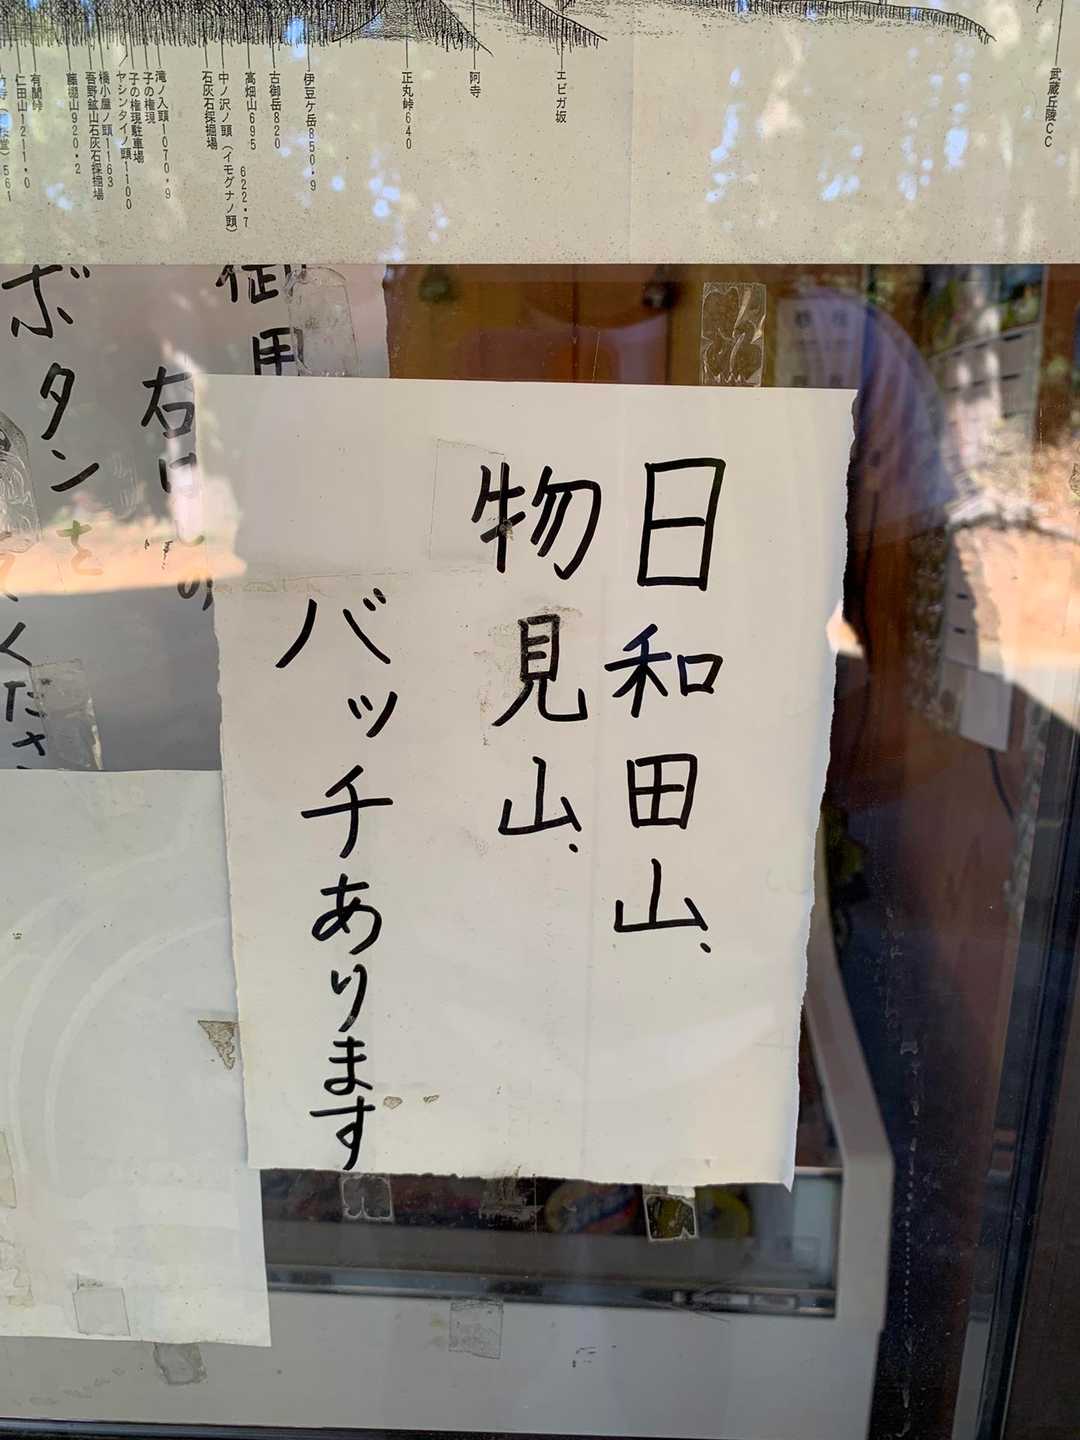 武蔵丘陵CC
エビガ坂
阿寺
正丸峠640
伊豆ケ岳850・9
古御岳820
高畑山695
622・7
中ノ沢ノ頭(イモグナノ頭)
石灰石採掘場
滝ノ入頭1070・9
子の権現
子の権現駐車場
ヤシンタイノ頭1100
橋小屋ノ頭1163
吾野鉱山石灰石採掘場
藤棚山920・2
有間峠
仁田山1211・0
561
日和田山、
物見山、
バッチあります
御用
右
ボタンを
ください